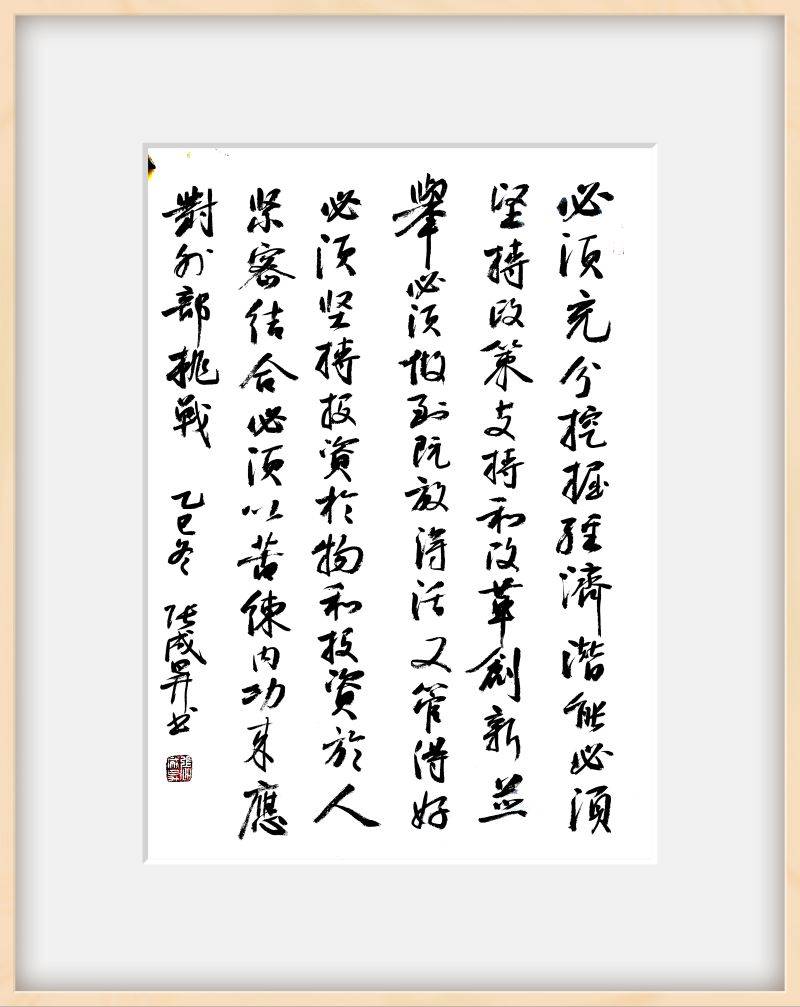 必须充分挖掘經濟潜能必须
坚持政策支持和改革創新並
舉必须做到既放得活又管得好
必须坚持投資於物和投資於人
紧密结合必须以苦练内功来應
對外部挑戰
乙巳冬 张成昇书